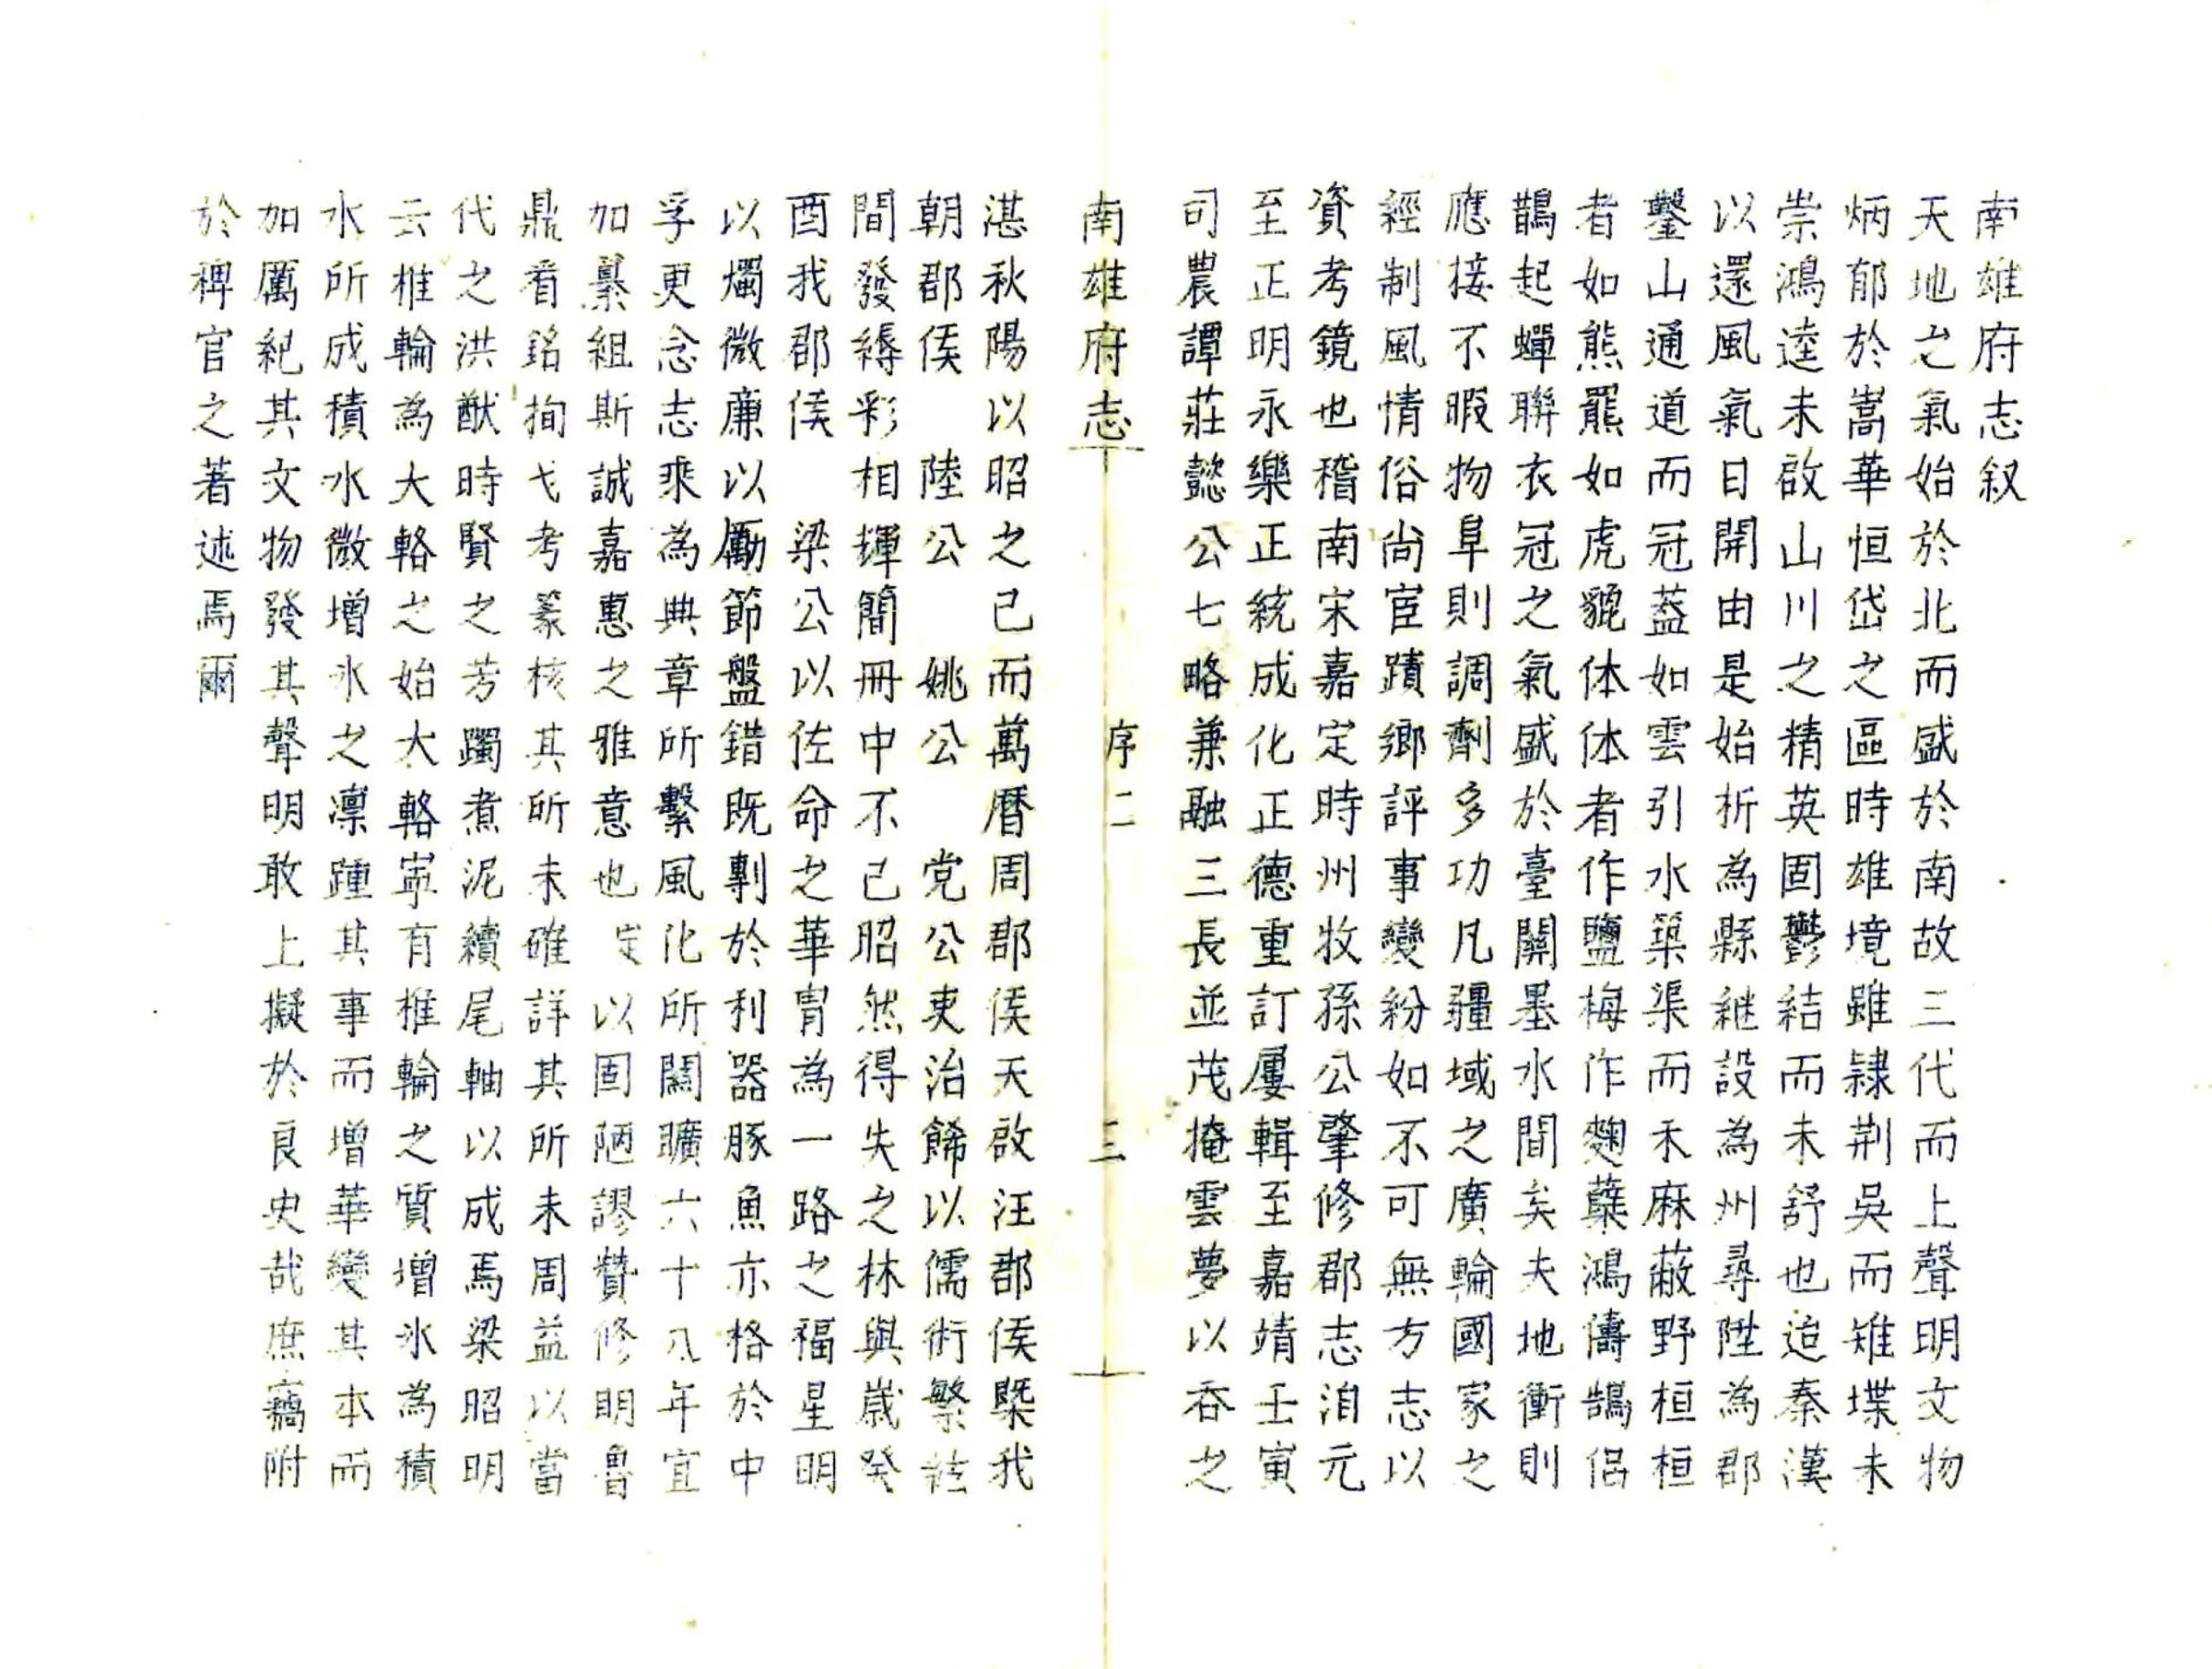 南雄府志叙
天地之氣始於北而盛於南故三代而上聲明文物
炳郁於嵩華恒岱之區時雄境雖隸荆吳而雉堞未
崇鴻逵未啟山川之精英固鬱結而未舒也迨秦漢
以還風氣日開由是始折為縣継設為州尋陞為郡
鑿山通道而冠蓋如雲引水築渠而禾麻蔽野桓桓
者如熊羆如虎貔体体者作鹽梅作麴蘖鴻儔鵠侣
鵲起蟬聯衣冠之氣盛於臺閣墨水間矣夫地衝則
應接不暇物阜則調劑多功凡疆域之廣輪國家之
經制風情俗尚宦蹟鄉評事變紛如不可無方志以
資考鏡也稽南宋嘉定時州牧孫公肇修郡志洎元
至正明永樂正統成化正德重訂屢輯至嘉靖壬寅
司農譚莊懿公七略兼融三長並茂掩雲夢以吞之
南雄府志 序二 三
湛秋陽以昭之已而萬曆周郡侯天啟汪郡侯曁我
朝郡侯 陸公 姚公 党公吏治餙以儒術繁
間發縟彩相輝簡冊中不已昭然得失之林與歲癸
酉我郡侯 梁公以佐命之華胄為一路之福星明
以燭微廉以勵節盤錯既剸於利器豚魚亦格於中
孚更念志乘為典章所繫風化所關曠六十八年宜
加纂組斯誠嘉惠之雅意也 定 以固陋謬贊修明魯
鼎看銘拘弋考篆核其所未確詳其所未周益以當
代之洪猷時賢之芳躅煮泥續尾軸以成焉梁昭明
云椎輪為大輅之始大輅寧有椎輪之質增氷為積
水所成積水微增氷之凛踵其事而增華變其本而
加厲紀其文物發其聲明敢上擬於良史哉庶竊附
於稗官之著述焉爾